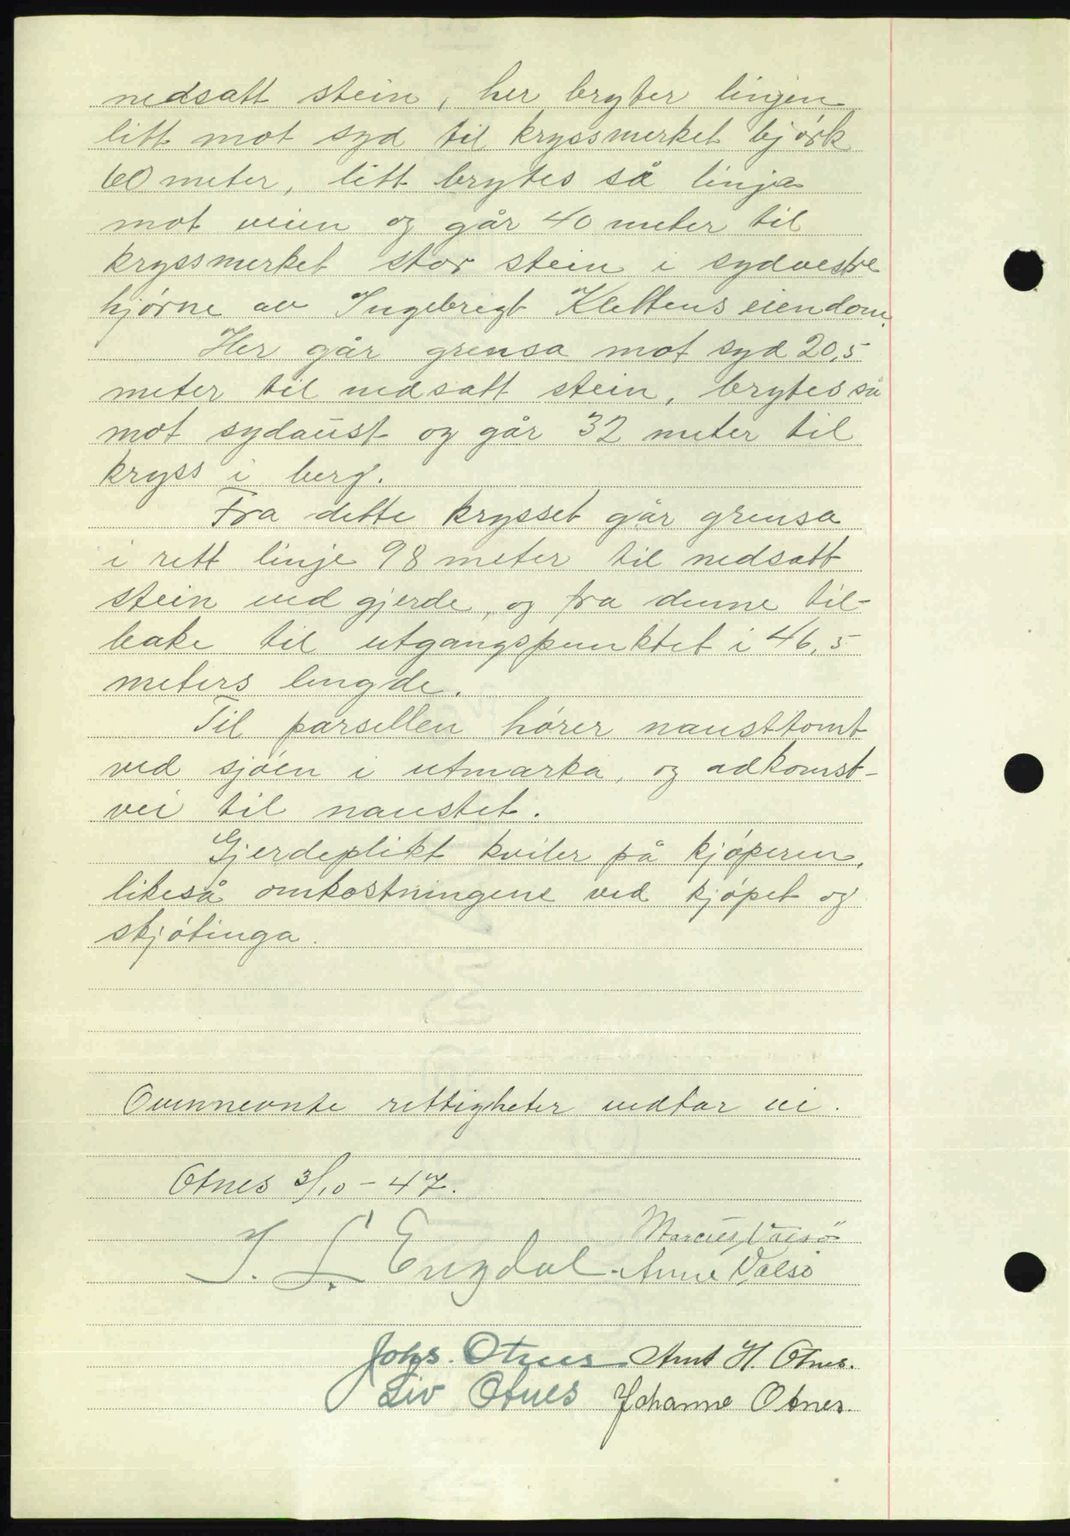 nedsatt stein, her bryter linjen
litt mot syd til kryssmerket bjørk
60 meter, litt brytes så linja
mot veien og går 40 meter til
kryssmerket stor stein i sydvestre
hjørne av Ingebrigt Klettens eiendom.
Her går grensa mot syd 20,5
meter til nedsatt stein, brytes så
mot sydaust og går 32 meter til
kryss i berg.
Fra dette krysset går grensa
i rett linje 98 meter til nedsatt
stein ved gjerde, og fra denne til-
bake til utgangspunktet i 46,5
meters lengde.
Til parsellen hører nausttomt
ved sjøen i utmarka, og adkomst-
vei til naustet.
Gjerdeplikt kviler på kjøperen,
likeså omkostningene ved kjøpet og
skjøtinga.
Ovennevnte rettigheter vedtar vi.
Otnes 3/10-47.
Marcus Valsö
I. L. Engdal. Anne Valsö
Johs. Otnes Arnt H. Otnes.
Liv Otnes Johanne Otnes.